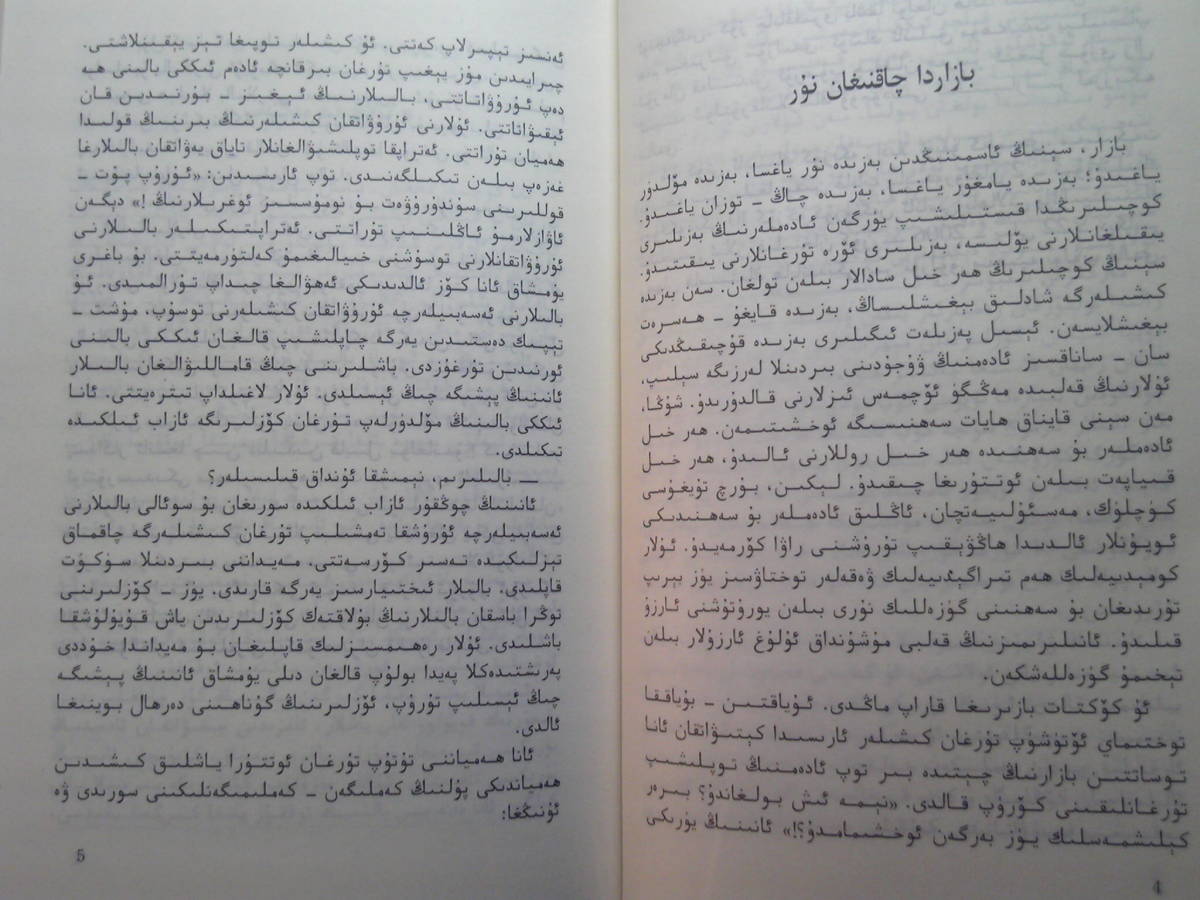 بازاردا چاقنىغان نۇر
بازار، سېنىڭ ئاسمىنىڭدىن بەزىدە نۇر ياغسا، بەزىدە مۆلدۈر
ياغىدۇ؛ بەزىدە يامغۇر ياغسا، بەزىدە چاڭ – توزان ياغىدۇ.
كوچىلىرىڭدا قىستىلىشىپ يۈرگەن ئادەملەرنىڭ بەزىلىرى
يىقىلغانلارنى يۆلىسە، بەزىلىرى ئۆرە تۇرغانلارنى يىقىتىدۇ.
سېنىڭ كوچىلىرىڭ ھەر خىل سادالار بىلەن تولغان. سەن بەزىدە
كىشىلەرگە شادلىق بېغىشلىساڭ، بەزىدە قايغۇ – ھەسرەت
بېغىشلايسەن. ئېسىل پەزىلەت ئىگىلىرى بەزىدە قۇچىقىڭدىكى
سان – ساناقسىز ئادەمنىڭ ۋۇجۇدىنى بىردىنلا لەرزىگە سېلىپ،
ئۇلارنىڭ قەلبىدە مەڭگۈ ئۆچمەس ئىزلارنى قالدۇرىدۇ. شۇڭا،
مەن سېنى قايناق ھايات سەھنىسىگە ئوخشىتىمەن. ھەر خىل
ئادەملەر بۇ سەھنىدە ھەر خىل روللارنى ئالىدۇ، ھەر خىل
قىياپەت بىلەن ئوتتۇرىغا چىقىدۇ. لېكىن، بۇرچ تۇيغۇسى
كۈچلۈك، مەسئۇلىيەتچان، ئاڭلىق ئادەملەر بۇ سەھنىدىكى
ئويۇنلار ئالدىدا ھاڭۋېقىپ تۇرۇشنى راۋا كۆرمەيدۇ. ئۇلار
كومېدىيەلىك ھەم تىراگېدىيەلىك ۋەقەلەر توختاۋسىز يۈز بېرىپ
تۇرىدىغان بۇ سەھنىنى گۈزەللىك نۇرى بىلەن يورۇتۇشنى ئارزۇ
قىلىدۇ. ئانىلىرىمىزنىڭ قەلبى مۇشۇنداق ئۇلۇغ ئارزۇلار بىلەن
تېخىمۇ گۈزەللەشكەن.
ئۇ كۆكتات بازىرىغا قاراپ ماڭدى. ئۇياقتىن – بۇياققا
توختىماي ئۆتۈشۈپ تۇرغان كىشىلەر ئارىسىدا كېتىۋاتقان ئانا
تۇساتتىن بازارنىڭ چېتىدە بىر توپ ئادەمنىڭ توپلىشىپ
تۇرغانلىقىنى كۆرۈپ قالدى. «نېمە ئىش بولغاندۇ؟ بىرەر
كېلىشمەسلىك يۈز بەرگەن ئوخشىمامدۇ؟!» ئانىنىڭ يۈرىكى
4
ئەنسىز تېپىرلاپ كەتتى. ئۇ كىشىلەر توپىغا تېز يېقىنلاشتى.
چىرايىدىن مۇز يېغىپ تۇرغان بىرقانچە ئادەم ئىككى بالىنى ھە
دەپ ئۇرۇۋاتاتتى. بالىلارنىڭ ئېغىز – بۇرنىدىن قان
ئېقىۋاتاتتى. ئۇلارنى ئۇرۇۋاتقان كىشىلەرنىڭ بىرىنىڭ قولىدا
ھەميان تۇراتتى. ئەتراپقا توپلىشىۋالغانلار تاياق يەۋاتقان بالىلارغا
غەزەپ بىلەن تىكىلگەنىدى. توپ ئارىسىدىن: «ئۇرۇپ پۇت –
قوللىرىنى سۇندۇرۇۋەت بۇ نومۇسسىز ئوغرىلارنىڭ !» دېگەن
ئاۋازلارمۇ ئاڭلىنىپ تۇراتتى. ئەتراپتىكىلەر بالىلارنى
ئۇرۇۋاتقانلارنى توسۇشنى خىيالىغىمۇ كەلتۈرمەيتتى. بۇ باغرى
يۇمشاق ئانا كۆز ئالدىدىكى ئەھۋالغا چىداپ تۇرالمىدى. ئۇ
بالىلارنى ئەسەبىيلەرچە ئۇرۇۋاتقان كىشىلەرنى توسۇپ، مۇشت –
تېپىك دەستىدىن يەرگە چاپلىشىپ قالغان ئىككى بالىنى
ئورنىدىن تۇرغۇزدى. باشلىرىنى چىڭ قاماللىۋالغان بالىلار
ئانىنىڭ پېشىگە چىڭ ئېسىلدى. ئۇلار لاغىلداپ تىترەيتتى. ئانا
ئىككى بالىنىڭ مۆلدۈرلەپ تۇرغان كۆزلىرىگە ئازاب ئىلكىدە
تىكىلدى.
— بالىلىرىم، نېمىشقا ئۇنداق قىلىسىلەر؟
ئانىنىڭ چوڭقۇر ئازاب ئىلكىدە سورىغان بۇ سوئالى بالىلارنى
ئەسەبىيلەرچە ئۇرۇشقا تەمشىلىپ تۇرغان كىشىلەرگە چاقماق
تېزلىكىدە تەسىر كۆرسەتتى، مەيداننى بىردىنلا سۈكۈت
قاپلىدى. بالىلار ئىختىيارسىز يەرگە قارىدى. يۈز – كۆزلىرىنى
توڭرا باسقان بالىلارنىڭ بۇلاقتەك كۆزلىرىدىن ياش قۇيۇلۇشقا
باشلىدى. ئۇلار رەھىمسىزلىك قاپلىغان بۇ مەيداندا خۇددى
پەرىشتىدەكلا پەيدا بولۇپ قالغان دىلى يۇمشاق ئانىنىڭ پېشىگە
چىڭ ئېسىلىپ تۇرۇپ، ئۆزلىرىنىڭ گۇناھىنى دەرھال بوينىغا
ئالدى.
ئانا ھەمياننى تۇتۇپ تۇرغان ئوتتۇرا ياشلىق كىشىدىن
ھەمياندىكى پۇلنىڭ كەملىگەن – كەملىمىگەنلىكىنى سورىدى ۋە
ئۇنىڭغا:
5